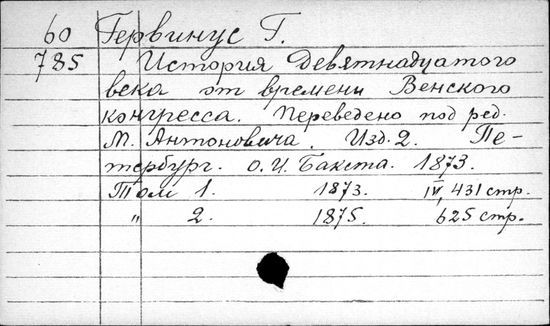 60 Гервинус Г.
785 История девятнадцатого
века от времени Венского
конгресса. Переведено под ред.
М. Антоновича. Изд. 2. Пе-
тербург. О.И. Бакста. 1873.
Том 1. 1873. IV, 431 стр.
„ 2. 1875. 625 стр.